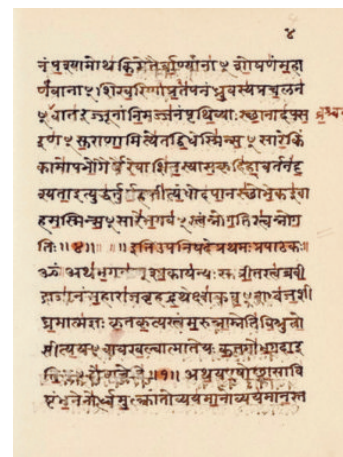 ४
नं पश्यामोथ किमेतैर्वाण्यानाꣳ शोषणं महा
र्णवानाꣳ शिखरिणां प्रपतनं ध्रुवस्य प्रचलनं
वातरज्जूनां निमज्जनं पृथिव्याः स्थानादपस
रणं सुराणामित्येतद्विधेस्मिन्सꣳसारे किं
कामोपभोगैर्यैरेवाशितस्यासकृदिहावर्तनं दृ
श्यता इत्युद्धर्तुमर्हसीत्यंधोदपानस्थो भेक इवा
हमस्मिन्सꣳसारे भगवꣳस्त्वं नो गतिस्त्वं नो ग
तिः ॥४॥ ॥ इति उपनिषदे प्रथमः प्रपाठकः ॥
ॐ अथ भगवान् शाकायन्यः सुप्रीतस्त्वब्रवी
द्राजानं महाराज बृहद्रथेक्ष्वाकुवꣳशध्वज शी
घ्रमात्मज्ञः कृतकृत्यस्त्वं मरुन्नाम्नेति विश्रुतो
सीत्ययं वाव खल्वात्मा ते यः कतमो भगवा इ
ति ॥१॥ अथ य एषोच्छ्वासावि
ष्टंभनेनोर्ध्वमुत्क्रांतो व्ययमानोव्ययमानस्त